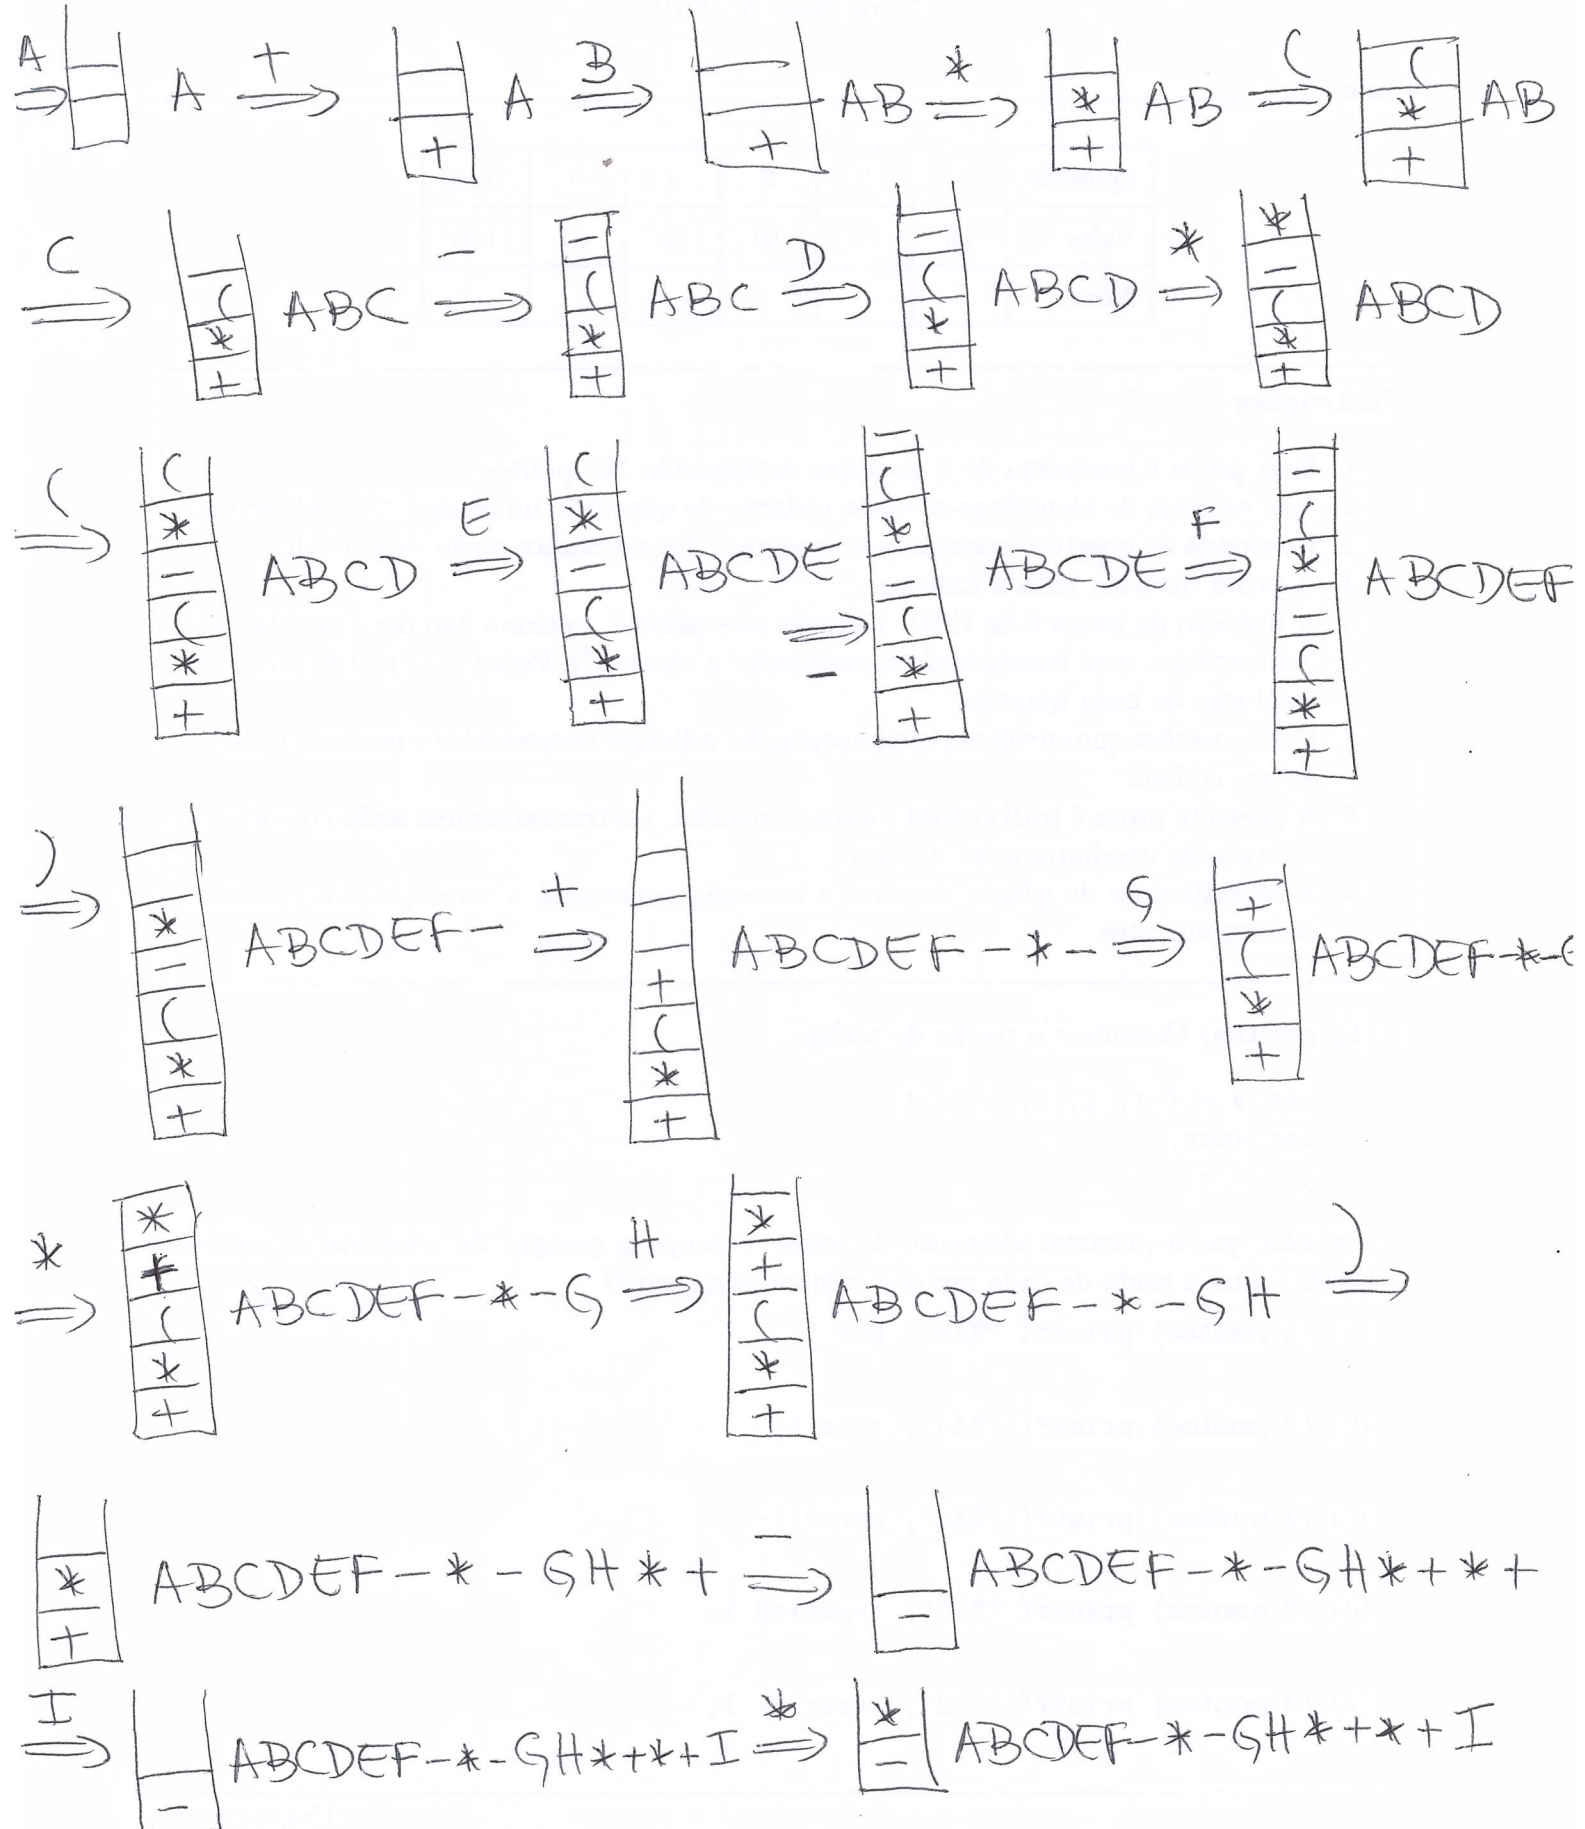 A ⇒ A + ⇒ + A B ⇒ + AB * ⇒ * + AB ( ⇒ ( * + AB
C ⇒ ( * + ABC - ⇒ - ( * + ABC D ⇒ - ( * + ABCD * ⇒ * - ( * + ABCD
( ⇒ ( * - ( * + ABCD E ⇒ ( * - ( * + ABCDE - ⇒ - ( * - ( * + ABCDE F ⇒ - ( * - ( * + ABCDEF
) ⇒ * - ( * + ABCDEF- + ⇒ + ( * + ABCDEF-*- G ⇒ + ( * + ABCDEF-*-G
* ⇒ * + ( * + ABCDEF-*-G H ⇒ * + ( * + ABCDEF-*-GH ) ⇒
* + ABCDEF-*-GH*+ - ⇒ - ABCDEF-*-GH*+*+
I ⇒ - ABCDEF-*-GH*+*+I * ⇒ * - ABCDEF-*-GH*+*+I